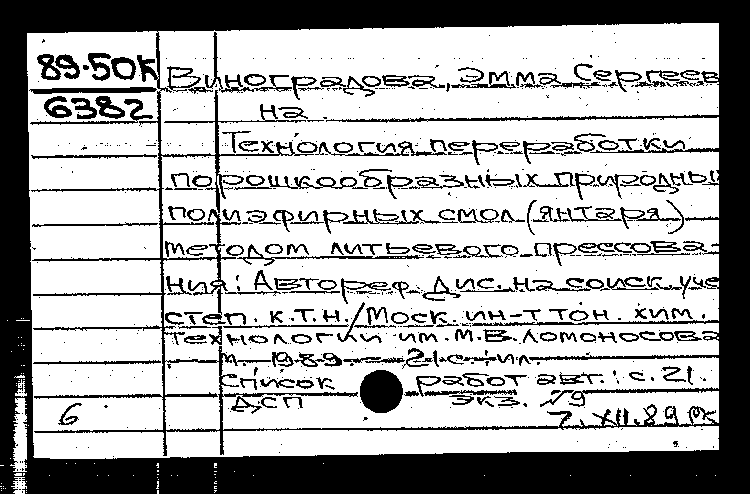 89-50к Виноградова, Эмма Сергеев
6382 на
Технология переработки
порошкообразных природны
полиэфирных смол (янтаря)
методом литьевого прессова-
ния: Автореф. Дис. на соиск. уче
степ. к.т.н./Моск. ин-т тон. хим.
технологии им. М.В. Ломоносова
М. 1989. - 21 с.: ил.
Список работ авт.: с. 21.
ДСП Экз. №9
6 7.XII.89